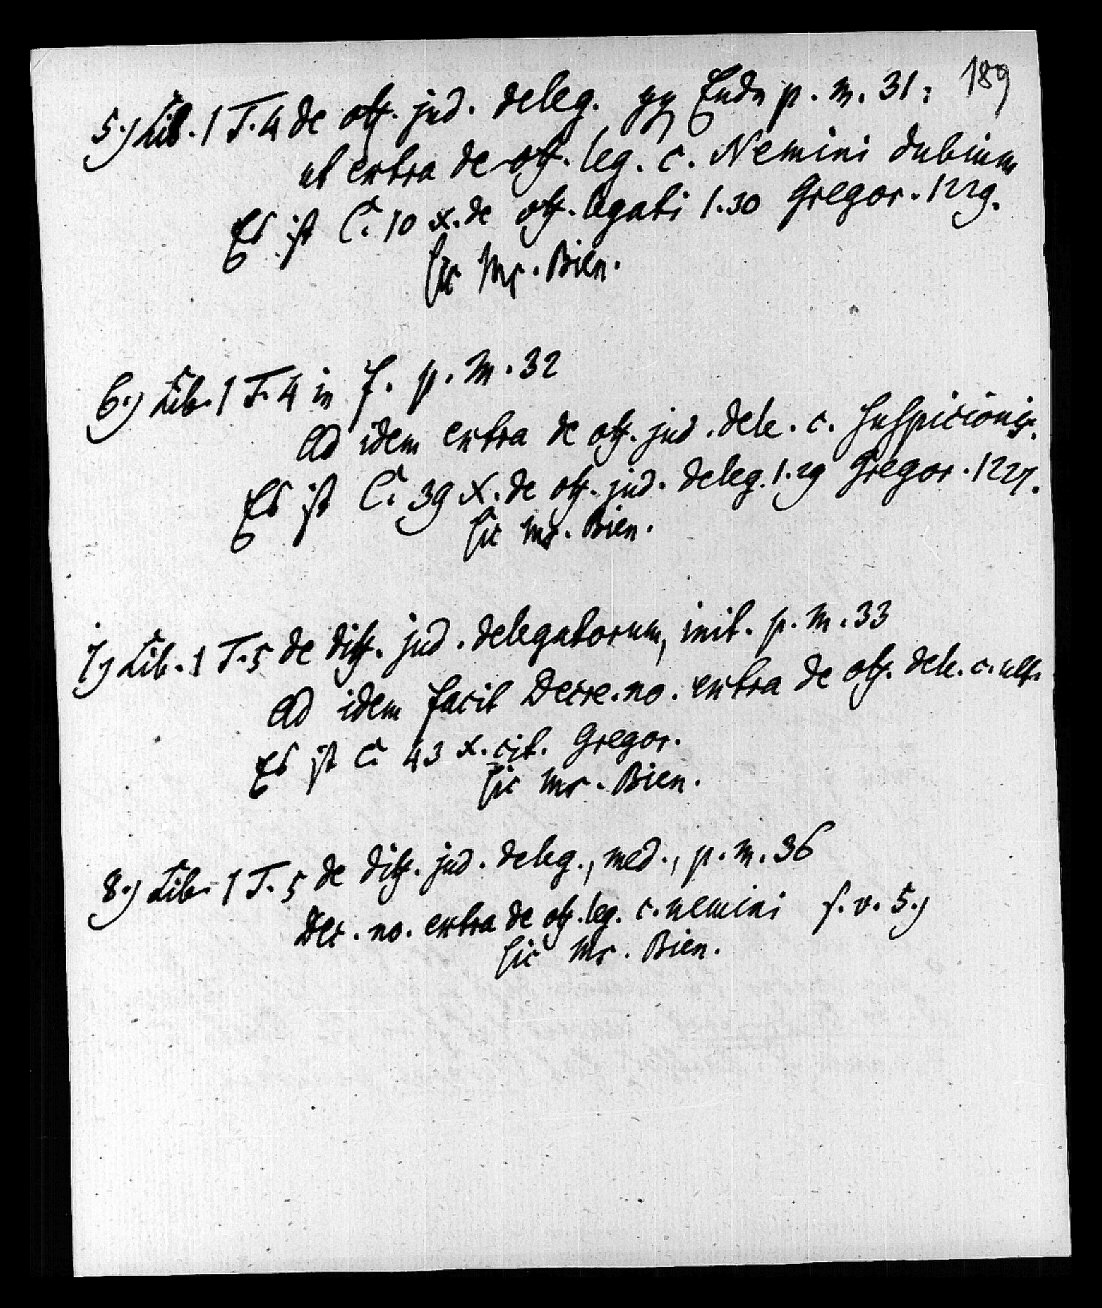 189
5.) Lib. 1 T. 4 de off. jud. deleg. gg Ende p. m. 31:
ut extra de off. leg. c. Nemini dubium
Es ist C. 10 X. de off. legati 1.30 Gregor. 1229.
sic Ms. Bien.
6.) Lib. 1 T. 4 in f. p. m. 32
Ad idem extra de off. jud. dele. c. suspicionis.
Es ist C. 39 X. de off. jud. deleg. 1.29 Gregor. 1227.
sic Ms. Bien.
7.) Lib. 1 T. 5 de diff. jud. delegatorum, init. p. m. 33
Ad idem facit Decre. no. extra de off. dele. c. ult.
Es ist C. 43 X. cit. Gregor.
sic Ms. Bien.
8.) Lib. 1 T. 5 de diff. jud. deleg., med., p. m. 36
Dec. no. extra de off. leg. c. nemini s. v. 5.)
sic Ms. Bien.